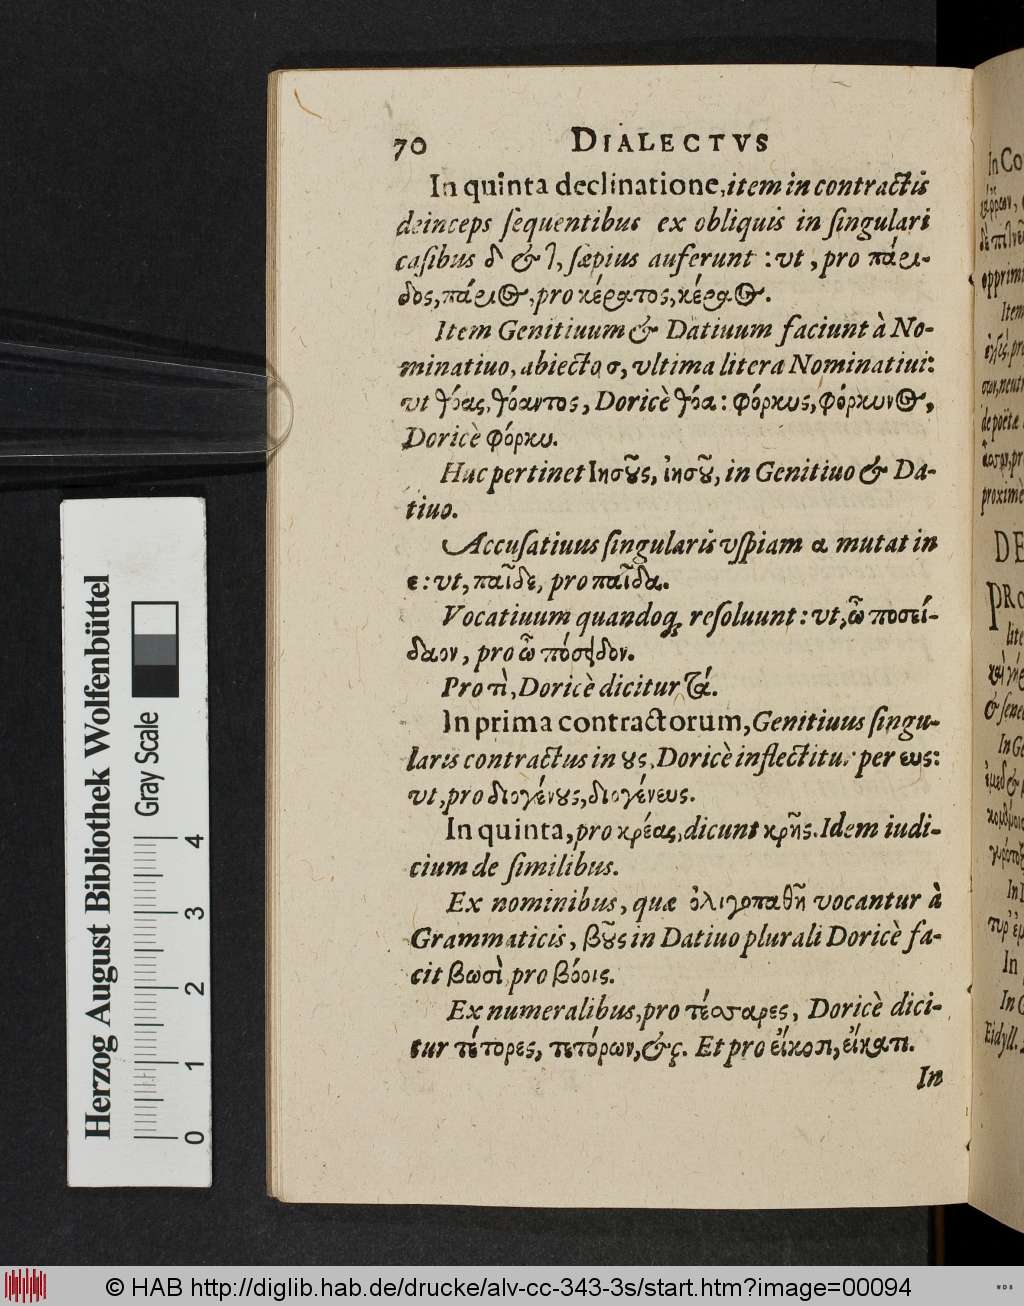 70 DIALECTVS
In quinta declinatione, item in contractis
deinceps sequentibus ex obliquis in singulari
casibus δ & τ, sæpius auferunt : vt, pro πάρι-
δος, πάριος, pro κέρατος, κέραος.
Item Genitiuum & Datiuum faciunt à No-
minatiuo, abiecto σ, vltima litera Nominatiui:
vt θόας, θόαντος, Doricè θόα : φόρκυς, φόρκυνος,
Doricè φόρκυ.
Huc pertinet Ιησοῦς, ἰησοῦ, in Genitiuo & Da-
tiuo.
Accusatiuus singularis vspiam α mutat in
ε : vt, παῖδε, pro παῖδα.
Vocatiuum quandoq; resoluunt : vt, ὦ ποσεί-
δαον, pro ὦ πόσειδον.
Pro τὶ, Doricè dicitur τά.
In prima contractorum, Genitiuus singu-
laris contractus in ους, Doricè inflectitur per ευς:
vt, pro διογένους, διογένευς.
In quinta, pro κρέας, dicunt κρῆς. Idem iudi-
cium de similibus.
Ex nominibus, quæ ὀλιγοπαθῆ vocantur à
Grammaticis, βοῦς in Datiuo plurali Doricè fa-
cit βωσὶ pro βόοις.
Ex numeralibus, pro τέσσαρες, Doricè dici-
tur τέτορες, τετόρων, &c. Et pro εἴκοσι, εἴκατι.
In
In Co
opprimi
Item
de poëtæ
proximè
DE
PRO
lite
& senec
In Ge
In
In
In
Eidyll.
Herzog August Bibliothek Wolfenbüttel
Gray Scale
0 1 2 3 4
© HAB http://diglib.hab.de/drucke/alv-cc-343-3s/start.htm?image=00094